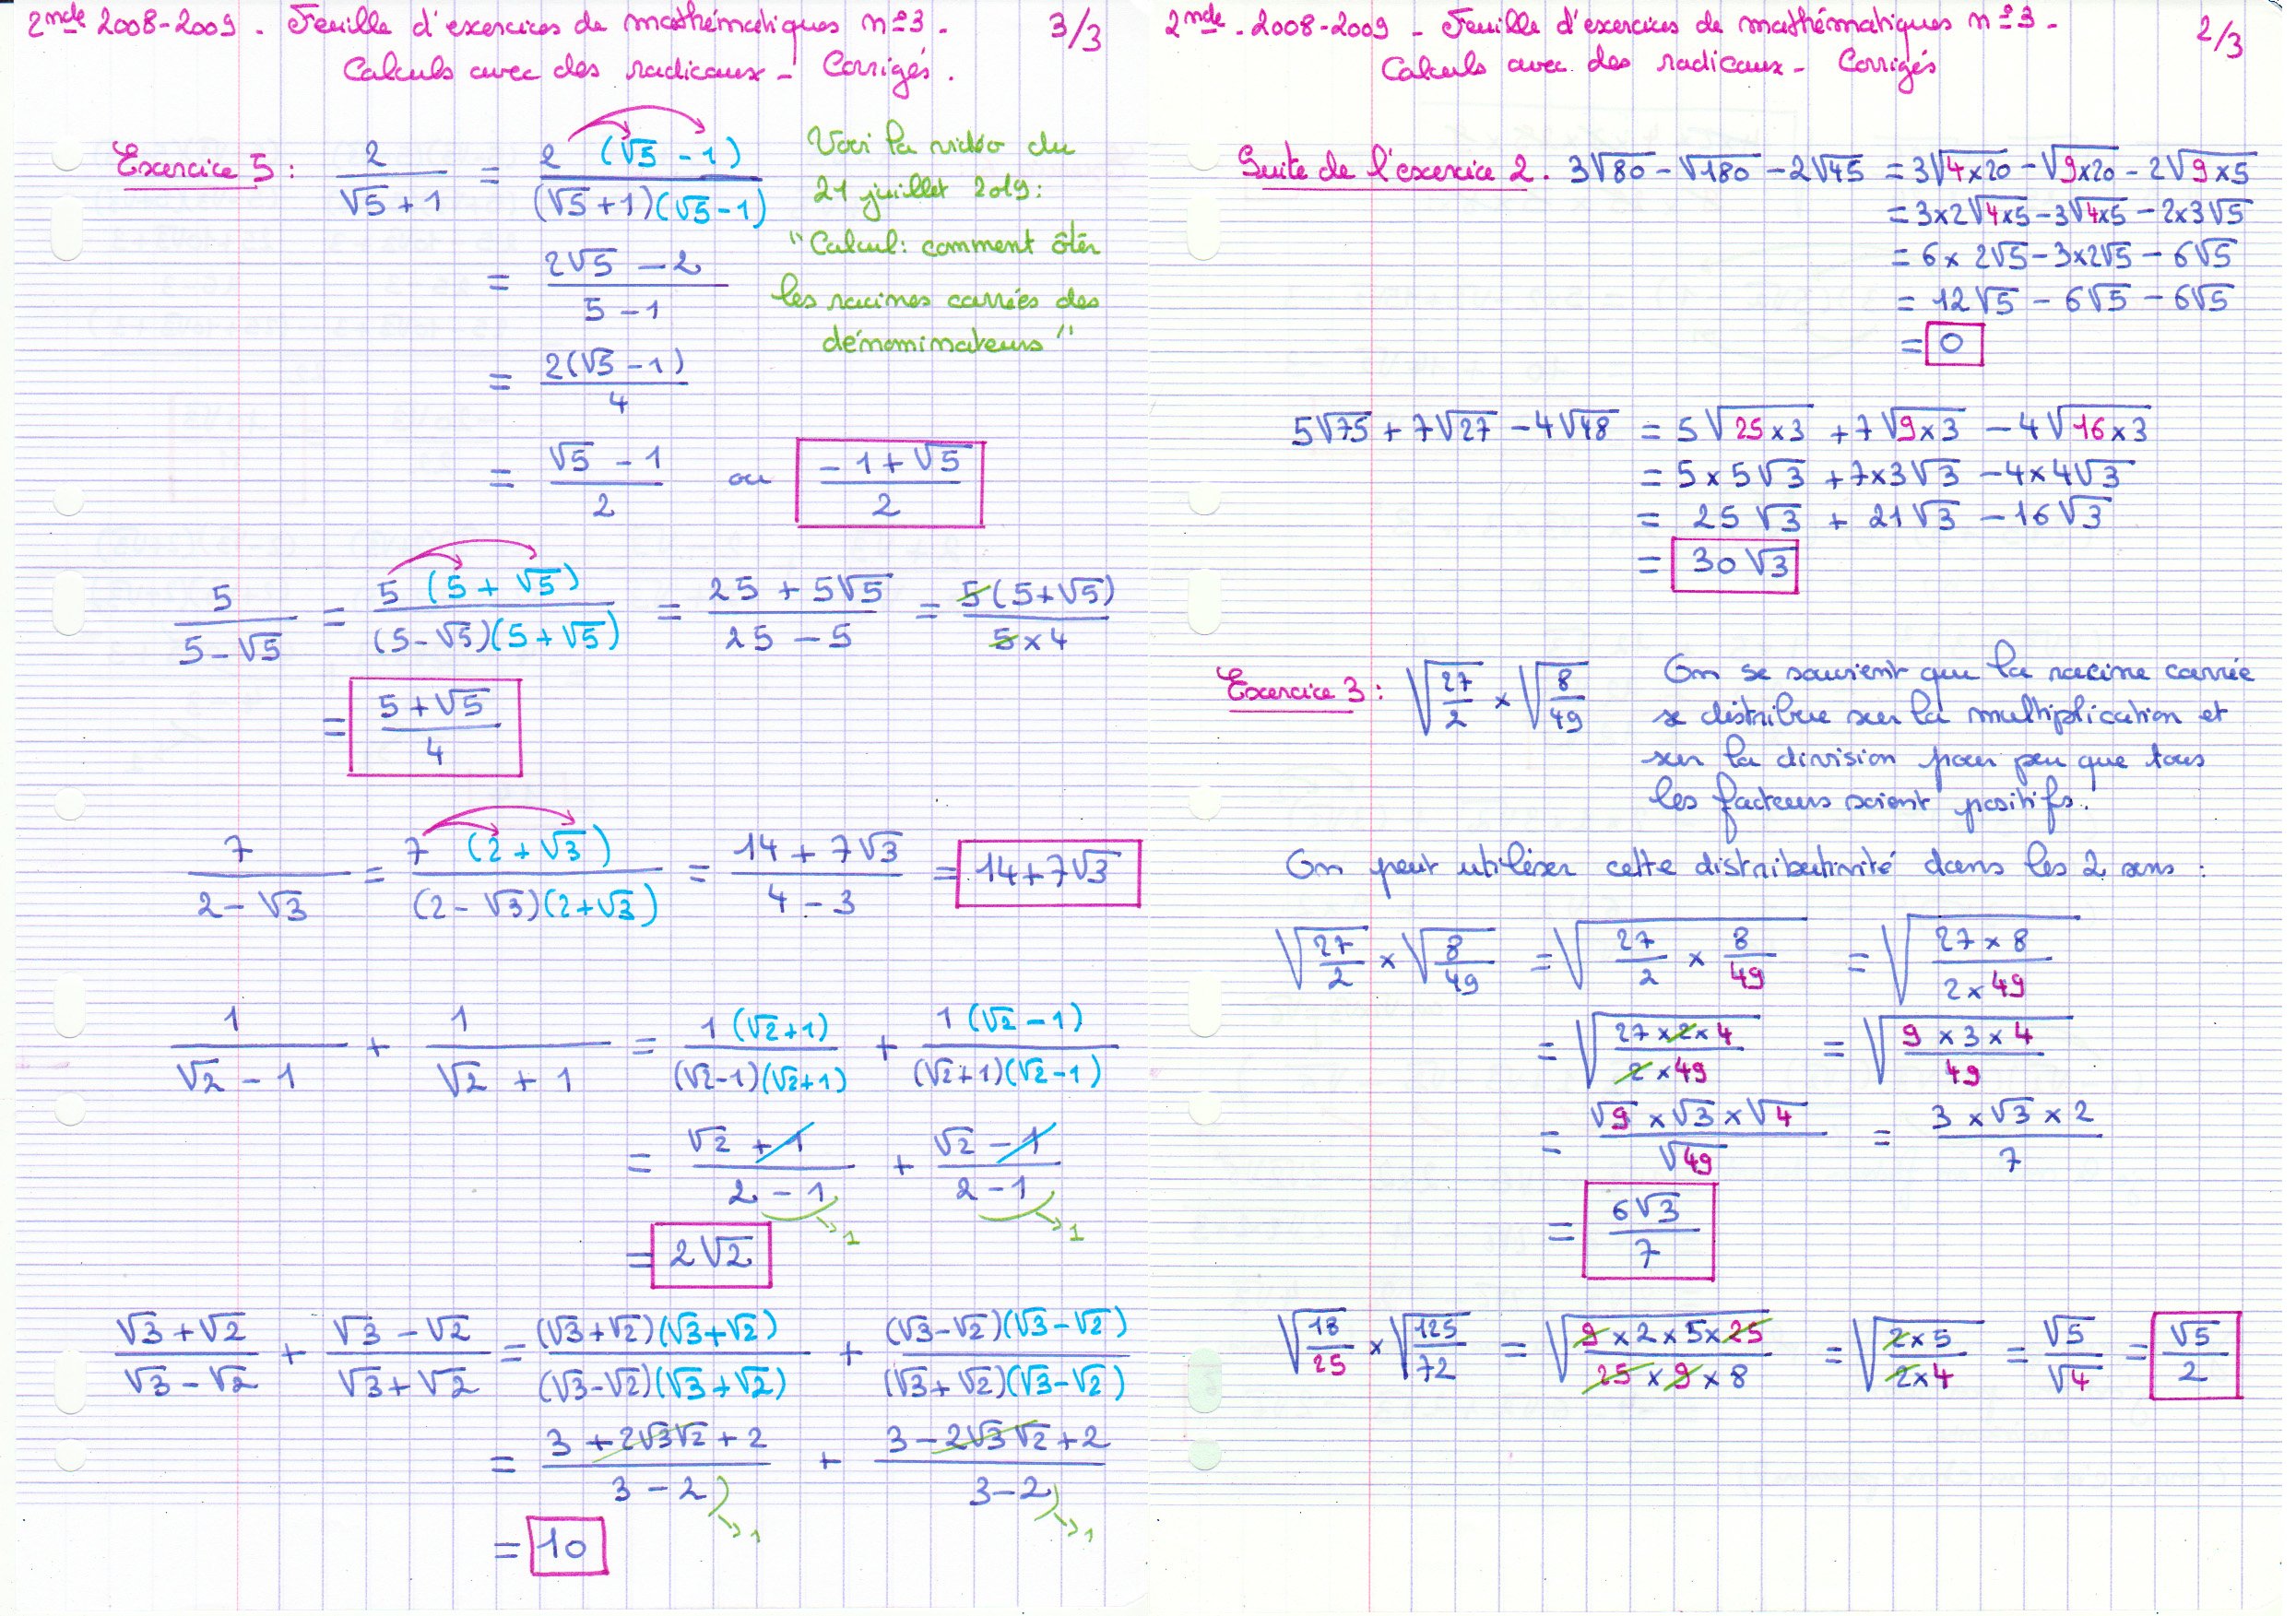 2nde 2008-2009 - Feuille d'exercices de mathématiques n°3 - 3/3
Calculs avec des radicaux - Corrigés.
Exercice 5 : 2/(√5 + 1) = 2 (√5 - 1)/((√5 + 1)(√5 - 1))
= (2√5 - 2)/(5 - 1)
= 2(√5 - 1)/4
= (√5 - 1)/2 ou (-1 + √5)/2
Voir la vidéo du
21 juillet 2019 :
"Calcul : comment ôter
les racines carrées des
dénominateurs"
5/(5 - √5) = 5 (5 + √5)/((5 - √5)(5 + √5)) = (25 + 5√5)/(25 - 5) = 5(5 + √5)/(5 × 4)
= (5 + √5)/4
7/(2 - √3) = 7 (2 + √3)/((2 - √3)(2 + √3)) = (14 + 7√3)/(4 - 3) = 14 + 7√3
1/(√2 - 1) + 1/(√2 + 1) = 1 (√2 + 1)/((√2 - 1)(√2 + 1)) + 1 (√2 - 1)/((√2 + 1)(√2 - 1))
= (√2 + 1)/(2 - 1) + (√2 - 1)/(2 - 1)
→ 1 → 1
= 2√2
(√3 + √2)/(√3 - √2) + (√3 - √2)/(√3 + √2) = (√3 + √2)(√3 + √2)/((√3 - √2)(√3 + √2)) + (√3 - √2)(√3 - √2)/((√3 + √2)(√3 - √2))
= (3 + 2√3√2 + 2)/(3 - 2) + (3 - 2√3√2 + 2)/(3 - 2)
→ 1 → 1
= 10
2nde - 2008-2009 - Feuille d'exercices de mathématiques n°3 - 2/3
Calculs avec des radicaux - Corrigés
Suite de l'exercice 2. 3√80 - √180 - 2√45 = 3√(4×20) - √(9×20) - 2√(9×5)
= 3×2√(4×5) - 3√(4×5) - 2×3√5
= 6× 2√5 - 3×2√5 - 6√5
= 12√5 - 6√5 - 6√5
= 0
5√75 + 7√27 - 4√48 = 5√(25×3) + 7√(9×3) - 4√(16×3)
= 5×5√3 + 7×3√3 - 4×4√3
= 25√3 + 21√3 - 16√3
= 30√3
Exercice 3 : √(27/2) × √(8/49)
On se souvient que la racine carrée
se distribue sur la multiplication et
sur la division pour peu que tous
les facteurs soient positifs.
On peut utiliser cette distributivité dans les 2 sens :
√(27/2) × √(8/49) = √(27/2 × 8/49) = √((27 × 8)/(2 × 49))
= √((27 × 2 × 4)/(2 × 49)) = √((9 × 3 × 4)/49)
= (√9 × √3 × √4)/√49 = (3 × √3 × 2)/7
= 6√3/7
√(18/25) × √(125/72) = √((9 × 2 × 5 × 25)/(25 × 9 × 8)) = √((2 × 5)/(2 × 4)) = √5/√4 = √5/2